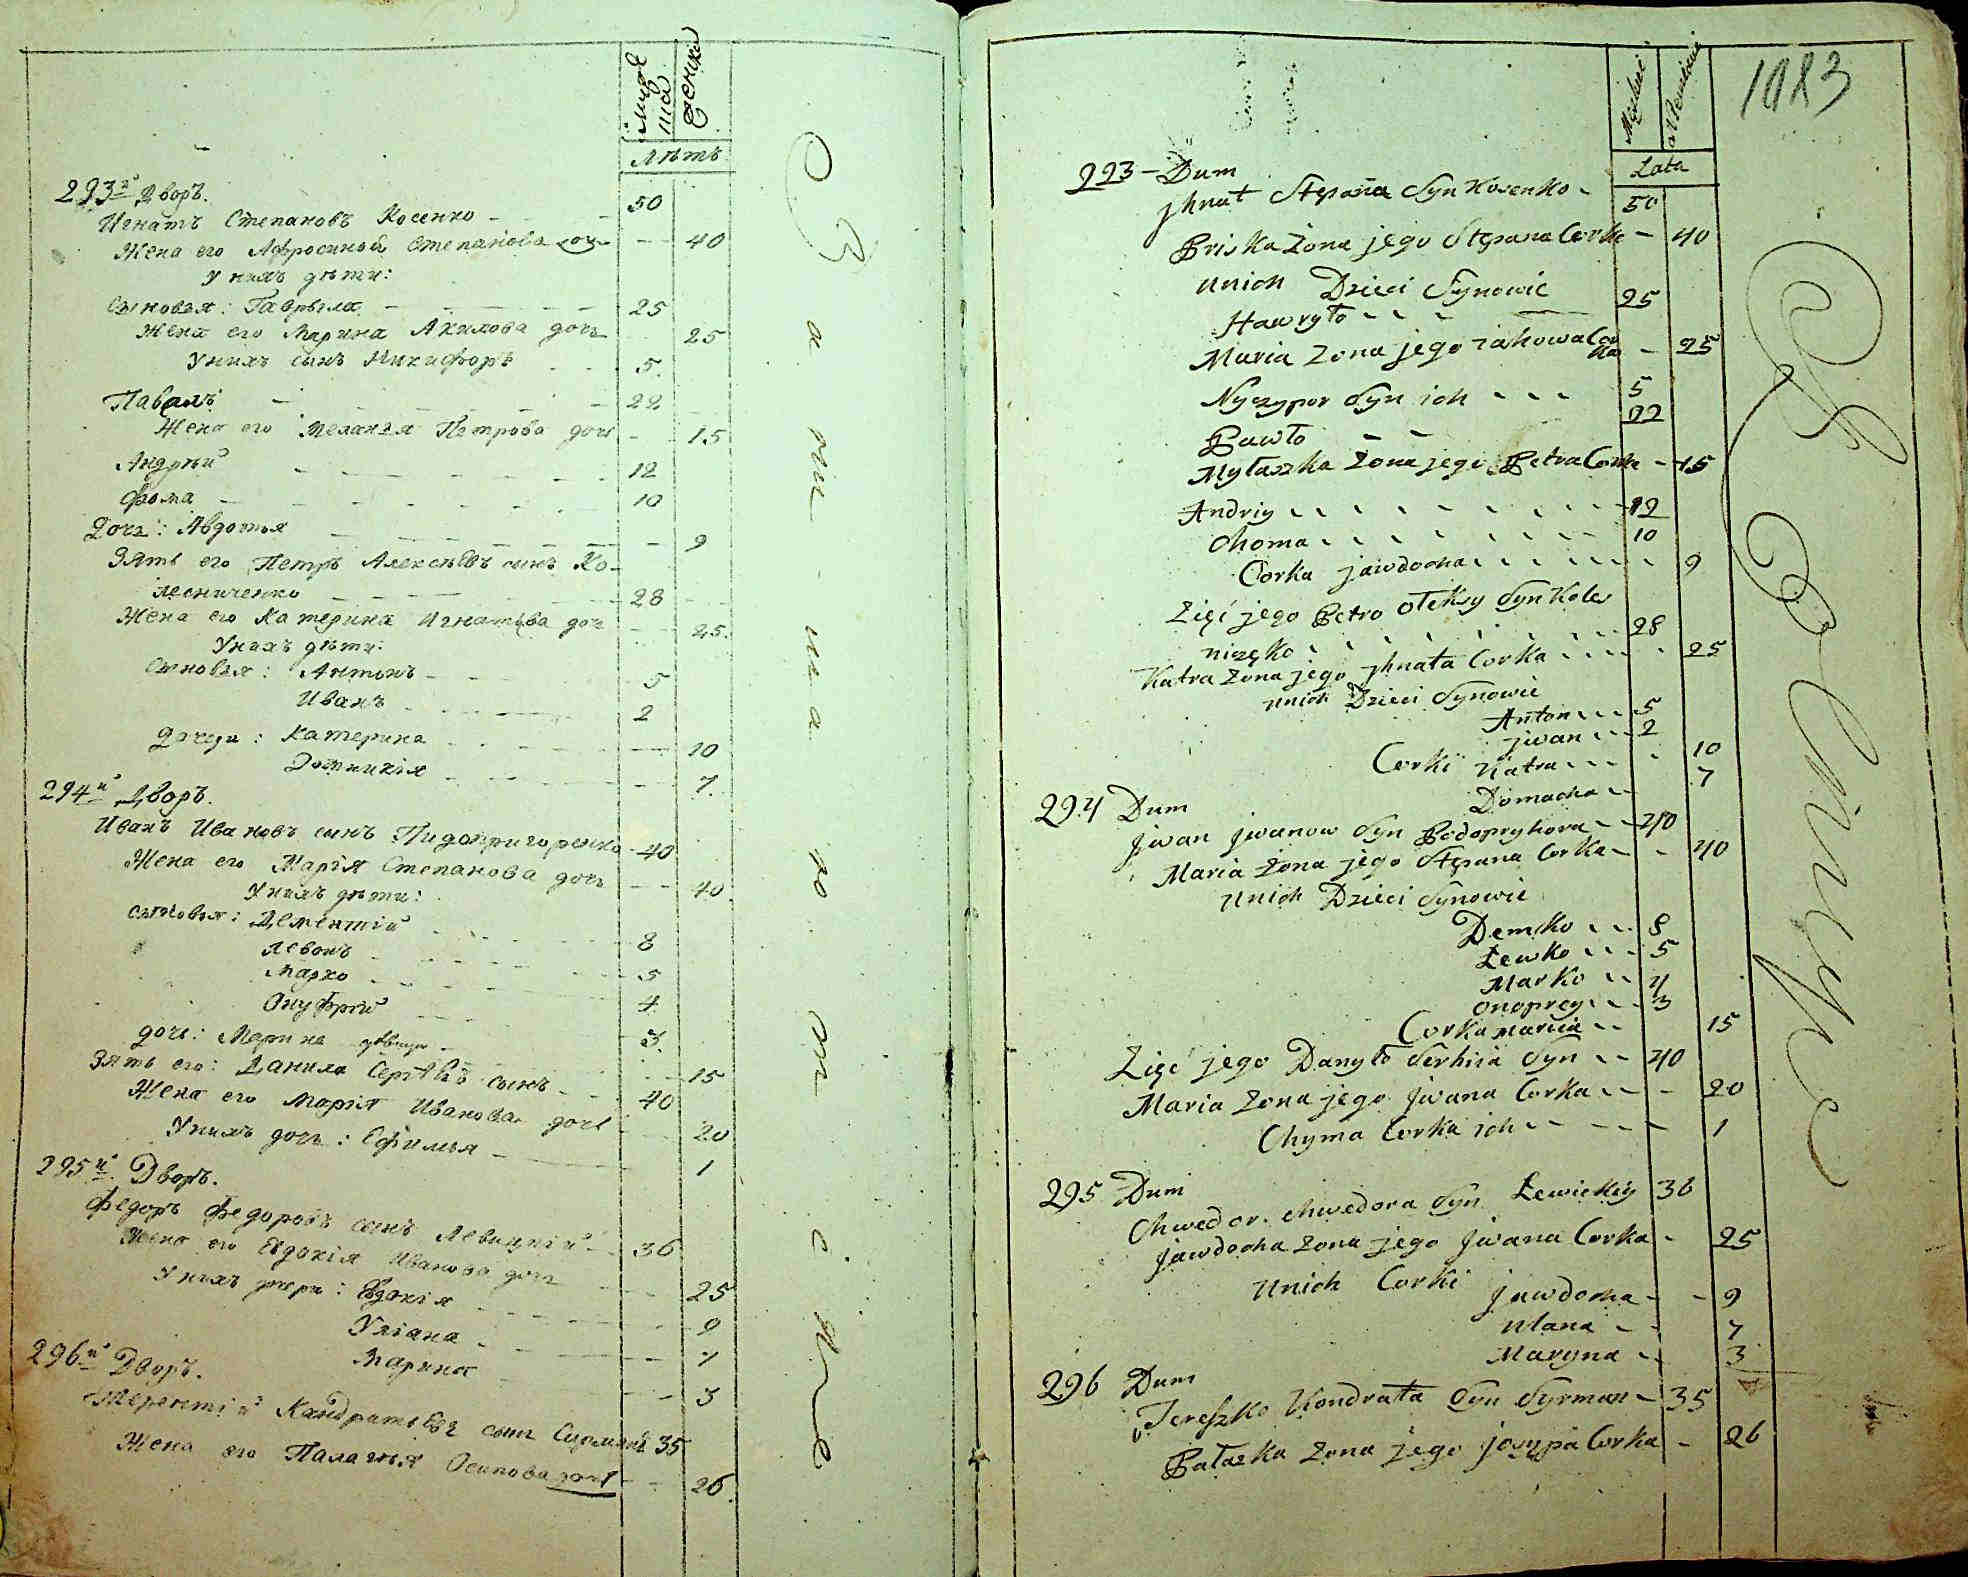 Лѣтъ
293й Дворъ.
Игнатъ Степановъ Косенко 50
Жена его Афросинья Степанова дочь 40
У нихъ дѣти:
Сыновья: Гаврыла 25
Жена его Марина Акимова дочь 25
У нихъ сынъ Никифоръ 5
Павелъ 22
Жена его Меланья Петрова дочь 15
Андрѣй 12
Фома 10
Дочь: Авдотья 9
Зять его Петръ Алексѣевъ сынъ Ко-
лесниченко 28
Жена его Катерина Игнатьева дочь 25
У нихъ дѣти:
Сыновья: Антонъ 5
Иванъ 2
Дочери: Катерина 10
Домникія 7
294й Дворъ.
Иванъ Ивановъ сынъ Пидопригоренко 40
Жена его Марія Степанова дочь 40
У нихъ дѣти:
Сыновья: Дементій 8
Левонъ 5
Марко 4
Онуфрій 3
Дочь: Марина 15
Зять его: Данила Сергѣевъ сынъ 40
Жена его Марія Иванова дочь 20
У нихъ дочь: Ефимья 1
295й Дворъ.
Федоръ Федоровъ сынъ Левицкій 36
Жена его Евдокія Иванова дочь 25
У нихъ дочери: Евдокія 9
Уліана 7
Марина 3
296й Дворъ.
Терентій Кандратьевъ сынъ Сирманъ 35
Жена его Палагья Осипова дочь 26
1083
Męzkiej
Lata
293 - Dum
Jhnat Stepana Syn Kosenko 50
Priska Żona jego Stepana Corka 40
Unich Dzieci Synowie
Hawryło 25
Maria Żona jego Jakowa Corka 25
Nyczypor Syn ich 5
Pawło 22
Myłaszka Żona jego Petra Corka 15
Andriy 12
Choma 10
Corka Jawdocha 9
Zięć jego Petro Oteksy Syn Koles
niczęko 28
Katra Żona jego Jhnata Corka 25
Unich Dzieci Synowie
Anton 5
Jwan 2
Corki Katra 10
Domacha 7
294 Dum
Jwan Jwanow Syn Podopryhora 40
Maria Żona jego Stepana Corka 40
Unich Dzieci Synowie
Demko 8
Lewko 5
Marko 4
Onoprey 3
Corka Maria 15
Zięć jego Danyło Serhija Syn 40
Maria Żona jego Jwana Corka 20
Chyma Corka ich 1
295 Dum
Chwedor Chwedora Syn Lewickiy 36
Jawdocha Żona jego Jwana Corka 25
Unich Corki Jawdocha 9
Ulana 7
Maryna 3
296 Dum
Tereszko Kondrata Syn Syrman 35
Pałazka Żona jego Josypa Corka 26